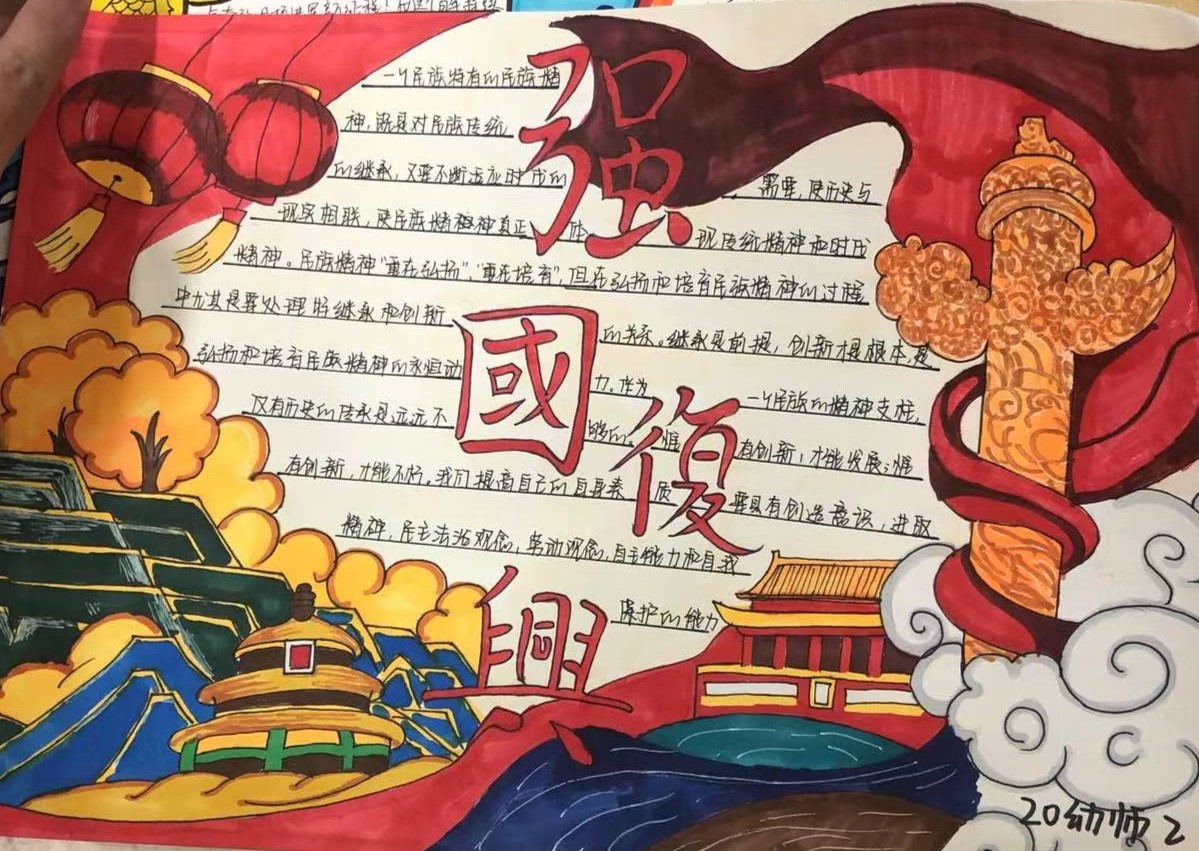 强國復興
一个民族特有的民族精
神，既是对民族传统
的继承，又要不断适应时代的 需要，使历史与
现实相联，使民族精神真正体现传统精神和时代
精神。民族精神“重在弘扬”、“重在培育”，但在弘扬和培育民族精神的过程
中尤其是要处理好继承和创新的关系。继承是前提，创新才根本是
弘扬和培育民族精神的永恒动力。作为一个民族的精神支柱，
仅有历史的传承是远远不够的，惟有创新，才能发展；惟
有创新，才能不朽。我们提高自己的自身素质要具有创造意识，进取
精神，民主法治观念，劳动观念，自主能力和自我
保护的能力
20幼师2